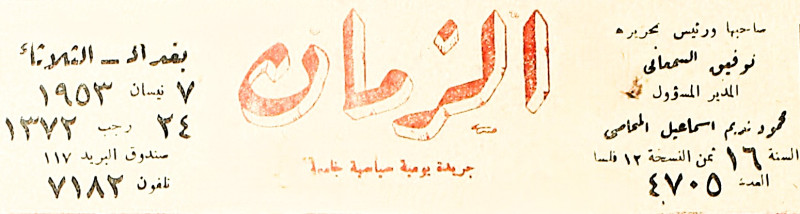 صاحبها ورئيس تحريره
توفيق السمعاني
المدير المسؤول
محمود نديم اسماعيل المحامي
السنة ١٦ ثمن النسخة ١٢ فلسا
العدد ٤٧٠٥
الزمان
جريدة يومية سياسية جامعة
بغداد ـ الثلاثاء
٧ نيسان ١٩٥٣
٢٤ رجب ١٣٧٢
صندوق البريد ١١٧
تلفون ٧١٨٢